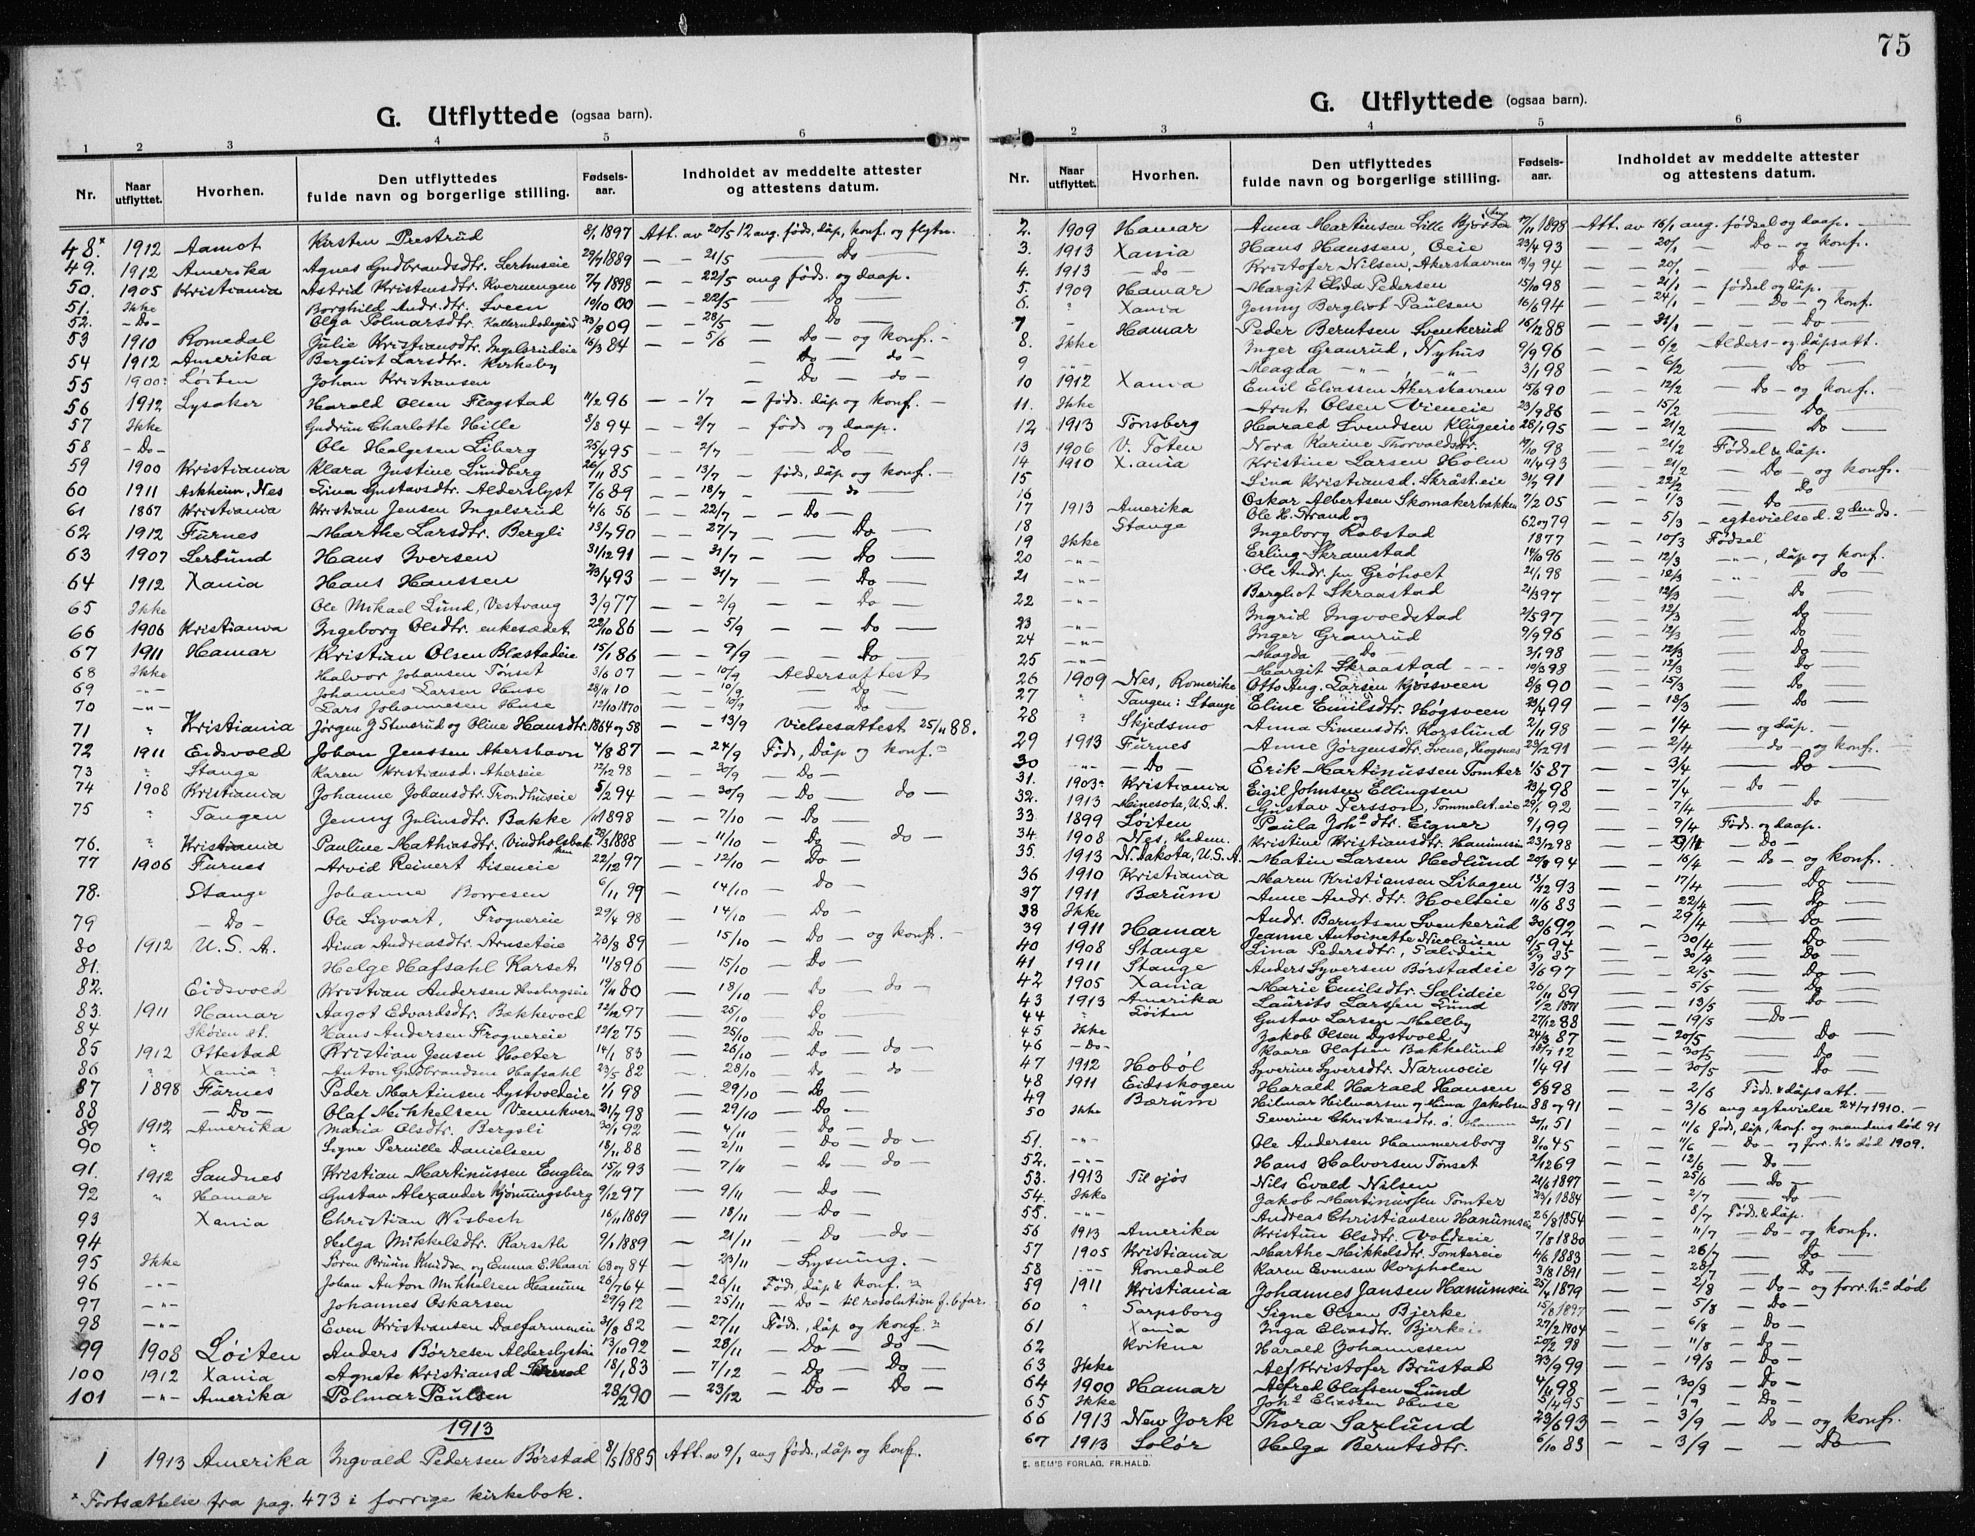 75
G. Utflyttede (ogsaa barn).
1 2 3 4 5 6
Nr. Naar utflyttet. Hvorhen. Den utflyttedes fulde navn og borgerlige stilling. Fødsels-aar. Indholdet av meddelte attester og attestens datum.
48.* 1912 Aamot Kirsten Prestrud 8/1 1897 Att. av 20/5 12 ang. føds, dåp, konf. og flytn.
49. 1912 Amerika Agnes Gudbrandsdtr. Lerhuseie 29/9 1889 — — 21/5 — Do —
50. 1905 Kristiania Astrid Kristensdtr. Kvernengen 7/7 1898 — — 22/5 ang føds. og daap.
51. Ikke Borghild Andr. dtr. Sveen 19/10 00 — — 22/5 — Do —
52. — Do — Olga Polmarsdtr. 23/8 09 — — 28/5 — Do —
53 1910 Romedal Julie Kristiansdtr. Ingelsrudeie 16/3 84 — — 5/6 — Do — og konf. —
54 1912 Amerika Bergliot Larsdtr. Kirkeby — Do — do —
55 1900 Løiten Johan Kristiansen — Do — do —
56 1912 Lysaker Harald Olsen Flagstad 11/2 96 — — 1/7 — føds. dåp og konf. —
57 Ikke Gudrun Charlotte Hille 8/8 94 — — 2/7 — føds og daap.
58 — Do — Ole Helgesen Liberg 25/4 95 — — 2/7 — Do —
59 1900 Kristiania Klara Justine Lundberg 26/11 85 — — 13/7 — føds, dåp og konf. —
60 1911 Askheim, Nes Lina Gustavsdtr. Alderslyst 7/6 89 — — 18/7 — — do —
61 1867 Kristiania Kristian Jensen Ingelsrud 4/6 56 — — 22/7 — Do —
62 1912 Furnes Marthe Larsdtr. Bergli 13/7 90 — — 27/7 — — Do —
63 1907 Lerbund Hans Iversen 31/12 91 — — 31/7 — — Do —
64 1912 Xania Hans Hanssen 23/4 93 — — 31/7 — — Do —
65 Ikke Ole Mikael Lund, Vestvang 3/9 77 — — 2/9 — — Do —
66 1906 Kristiania Ingeborg Olsdtr. enkesædet 22/10 86 — — 5/9 — — Do —
67 1911 Hamar Kristian Olsen Blæstadeie 15/1 86 — — 9/9 — Do —
68 Ikke Halvor Johansen Tønset 3/6 07 — — 10/9 Aldersattest
69 — " — Johannes Larsen Huse 28/11 10 — — 10/9 — Do —
70 — " — Lars Johannesen Huse 12/10 1870 — — 10/9 — Do —
71 " Kristiania Jørgen J Stusrud og Oline Hansdtr. 1864 og 58 — — 13/9 Vielsesattest 25/11 88.
72 1911 Eidsvold Johan Jenssen Akershavn 4/8 87 — — 24/9 Føds, Dåp og konf.
73 " Stange Karen Kristiansd. Akerseie 12/12 98 — 30/9 — Do —
74 1908 Kristiania Johanne Johansdtr. Trondhuseie 5/2 94 — 30/9 — Do — do —
75 " Tangen Jenny Juliusdtr. Bakke 1898 — 7/10 — Do —
76. " Kristiania Pauline Mathiasdtr. Vindholsbakken 28/3 1888 — 11/10 — Do do —
77 1906 Furnes Arvid Reinert Diseneie 22/12 97 — 12/10 — Do —
78. Stange Johanne Borresen 6/11 99 — 14/10 — Do —
79 — Do — Ole Sigvart, Frognereie 29/4 98 — 14/10 — Do —
80 1912 U. S. A. Dina Andreasdtr. Arnseteie 23/3 89 — 15/10 — Do — og konf. —
81. Helge Hafsahl Karset 11/8 96 — 15/10 — Do —
82. Eidsvold Kristian Andersen 19/11 80 — 18/10 — Do — do —
83. 1911 Hamar Aagot Edvardsdtr. Bækkevold 22/12 97 — 25/10 — Do —
84 Skøien st. Hans Andersen Frognereie 12/2 75 — 25/10 — Do —
85 1912 Ottestad Kristian Jensen Holter 14/1 83 — 26/10 — Do — do —
86 " Xania " Anton Gudbrandsen Hafsahl 23/5 82 — 28/10 — Do — do
87 1898 Furnes Peder Martinsen Dystvoldeie 1/1 98 — 29/10 — Do
88 — Do — Olaf Mikkelsen Vennkvern 21/7 98 — 29/10 — Do —
89 1912 Amerika Maria Olsdtr. Bergsli 30/1 92 — 4/11 — Do —
90 " Signe Pernille Danielsen 18/11 88 — 2/11 — Do — do —
91. 1912 Sandnes Kristian Martinussen Englien 15/11 93 — 7/11 — Do do —
92 " Hamar Gustav Alexander Kjønningsberg 9/12 97 — 9/11 — Do —
93 Xania Christian Wisbech 16/11 1869 — 18/11 — Do —
94 Helga Mikkelsdtr. Karseth 9/1 1889 — 21/11 — Do do —
95 Ikke Søren Bruun Knudsen og Emma E. Haavi 63 og 84 — 23/11 — Lysning. —
96 — " — Johan Anton Mikkelsen Hanum 26/7 64 — 26/11 Føds, dåp & konf.
97 — " — Johannes Oskarsen 29/9 12 — 25/11 — Do — til resolution f. b. far.
98 — " — Even Kristiansen Dalfarmmeie 31/8 82 — 27/11 Føds, dåp og konf.
99 1908 Løiten Anders Børresen Alderslysteie 13/10 92 — 28/11 — Do — do —
100 1912 Xania Agnete Kristiansd 18/1 83 — 7/12 — Do — Do —
101 — " — Amerika Polmar Paulsen 28/2 90 — 23/12 — Do — Do —
1913
1 1913 Amerika Ingvald Pedersen Børstad 8/5 1885 Att. av 9/1 ang føds, dåp og konf.
* Fortsættelse fra pag. 473 i forrige kirkebok.
G. Utflyttede (ogsaa barn).
1 2 3 4 5 6
Nr. Naar utflyttet. Hvorhen. Den utflyttedes fulde navn og borgerlige stilling. Fødsels-aar. Indholdet av meddelte attester og attestens datum.
2. 1909 Hamar Anna Martinsen Lille 17/11 1898 Att. av 16/1 ang. fødsel og daap. —
3. 1913 Xania Hans Hanssen, Oeie 23/4 93 — — 20/1 — Do — og konf.
4. 1913 — Do — Kristofer Nilsen, Akershavnen 13/9 94 — — 20/1 — Do —
5. 1909 Hamar Margit Elida Pedersen 15/10 98 — — 21/1 — fødsel og dåp. —
6. " Xania Jenny Bergliot Paulsen 16/6 94 — — 24/1 — Do — og konf.
7 — Hamar Peder Berntsen Svenkerud 16/2 88 — — 31/1 — Do —
8. Ikke Inger Granrud, Nyhus 9/9 96 — — 6/2 — Alders- og dåpsatt.
9 — " — Magda — " — — " — 3/1 98 — — 6/2 — Do —
10 1912 Xania Emil Eliassen Akershavnen 15/6 90 — — 12/2 Do — og konf.
11. Ikke Arnt Olsen Vieneie 23/9 86 — — 15/2 — Do —
12 1913 Tønsberg Harald Svendsen Klugeeie 28/1 95 — — 21/2 — Do —
13 1906 V. Toten Nora Karine Thorvaldsdtr. 19/10 98 — — 21/2 Fødsel & dåp.
14 1910 Xania Kristine Larsen Holm 11/4 93 — — 21/2 — Do — og konf.
15 Lina Kristiansd. Skråst. eie 31/7 91 — — 22/2 — Do
16 Oskar Albertsen Skomakerbakken 7/2 05 — — 1/3 — Do —
17 1913 Amerika Ole H. Strand og 62 og 79 — — 5/3 — egtevielse d. 2den ds. —
18 Stange Ingeborg Rabstad 1877 — — 10/3 Fødsel
19 Ikke Erling Skramstad 14/10 96 — — 12/3 — " —, dåp og konf.
20 — " — Ole Andr. sen Grøholt 21/1 98 — — 12/3 — " — do —
21 — " — Bergliot Skraastad 21/3 97 — — 12/3 — Do —
22 — " — Ingrid Ingvoldstad 2/5 97 — — 12/3 — Do —
23 — " — Inger Granrud 9/9 96 — — 12/3 — Do —
24 — " — Magda — Do — 3/1 98 — — 12/3 — Do —
25 — " — Margit Skraastad - - - 10/3 98 — — 12/3 — Do —
26 1909 Nes, Romerike Otto Aug. Larsen Kjøssveen 8/8 90 — — 15/3 — Do —
27 " Tangen: Stange Eline Emilsdtr. Høgsveen 23/4 99 — — 18/3 — Do —
28 " Skjedsmo Anna Simensdtr. Korslund 2/11 98 — — 1/4 — og dåp.
29 1913 Furnes Anne Jørgensdtr. 23/12 91 — — 2/4 — do — og konf.
30 — " — — Do — Erik Martinussen Tomter 1/5 87 — — 3/4 — Do —
31. 1903 Kristiania Eigil Johnsen Ellingsen 23/7 98 — — 7/4 Do —
32. 1913 Minesota, U.S.A. Gustav Persson, Tommelst. eie 29/1 92 — — 7/4 — Do
33 1899 Løiten Paula Joh.s dtr. Eigner 9/1 99 — — 9/4 Føds. og daap.
34 1908 Nes, Hedem. Kristine Kristiansdtr. Hanumseie 23/12 98 — — — Do —
35. 1913 N. Dakota, U.S.A. Matin Larsen Hedlund 20/8 94 — — 16/4 — Do — og konf.
36 1910 Kristiania Maren Kristiansen Lihagen 13/12 93 — — 17/4 — Do —
37 1911 Bærum Anne Andr. dtr. Hoelseie 11/6 83 — — 22/4 — Do —
38 Ikke Andr. Berntsen Svenkerud 30/6 92 — — 29/4 — Do —
39 1911 Hamar Jeanne Antoinette Nicolaisen 9/5 94 — — 30/4 — Do —
40 1908 Stange Lina Pedersdtr., Sælideie 6/9 85 — — 30/4 — Do —
41 1911 Stange Anders Syversen Børstadeie 3/6 97 — — 2/5 — Do —
42 1905 Xania Marie Emilsdtr. Sælideie 26/11 89 — — 5/5 — Do —
43 1913 Amerika Laurits Larssen Lund 1/2 1871 — — 13/5 — Do
44 " Løiten Gustav Larsen Melleby 27/12 88 — — 19/5 — Do —
45 Ikke Jakob Olsen Dystvold 24/3 87 — — 20/5 — Do —
46 — Do — Kaare Olafsen Bækkelund 18/7 12 — — 30/5 — Do —
47 1912 Hobøl Syverine Syversdtr. Narmoeie 1/4 91 — — 30/5 — Do —
48 1911 Eidsskogen Harald Harald Hansen 6/3 98 — — 2/6 Føds. & dåpsatt. —
49 Bærum Hilmar Hilmarsen og Mina Jakobsen 88 og 91 — — 3/6 ang egtevielse 24/7 1910. —
50 Ikke Severine Christiansdtr. 30/11 51 — — 11/6 føds, dåp, konf. og mandens død 91
51. — " — Ole Andersen Hammersborg 8/10 45 — — 11/6 — Do — og forr. h's død 1909.
52. — " — Hans Halvorsen Tønset 2/12 69 — — 12/6 — Do —
53. 1913 Til sjøs Nils Evald Nilsen 21/6 1897 — — 25/6 — Do —
54. Ikke Jakob Martinussen Tomter 23/1 1884 — — 2/7 — Do —
55. — " — Andreas Christiansen Hanumseie 26/8 1854 — — 8/7 Føds. & dåp.
56 1913 Amerika Kristine Olsdtr. Voldseie 7/8 1880 — — 11/7 — Do — og konf.
57 1905 Kristiania Marthe Mikkelsdtr. Tomtereie 4/6 1883 — — 26/7 — Do —
58 — " — Romedal Karen Evensen Korpholen 3/8 1891 — — 28/7 — Do —
59 1911 Kristiania Johannes Jansen Hanumseie 25/4 1879 — — 2/8 — Do — og forr. h.s død
60 " Sarpsborg Signe Olsen Bjerke 15/8 1897 — — 5/8 — Do —
61 Xania Inga Eliasdtr. Bjerkeie 27/2 1904 — — 6/8 — Do —
62 Kvikne Harald Johannesen 20/2 98 — — 11/8 — Do —
63 Ikke Alf Kristofer Brustad 23/9 99 — — 19/8 — Do —
64 1900 Hamar Alfred Olafsen Lund 4/11 98 — — 30/8 — Do —
65 Ikke Joh.s Eliassen Huse 5/4 95 — — 1/9 — Do —
66 1913 New York Thora Saxlund 23/6 93 — — 3/9 — Do — og konf.
67 1913 Solør Helga Berntsdtr. 6/10 83 — — 3/9 — Do —
E. SEM'S FORLAG, FR.HALD.